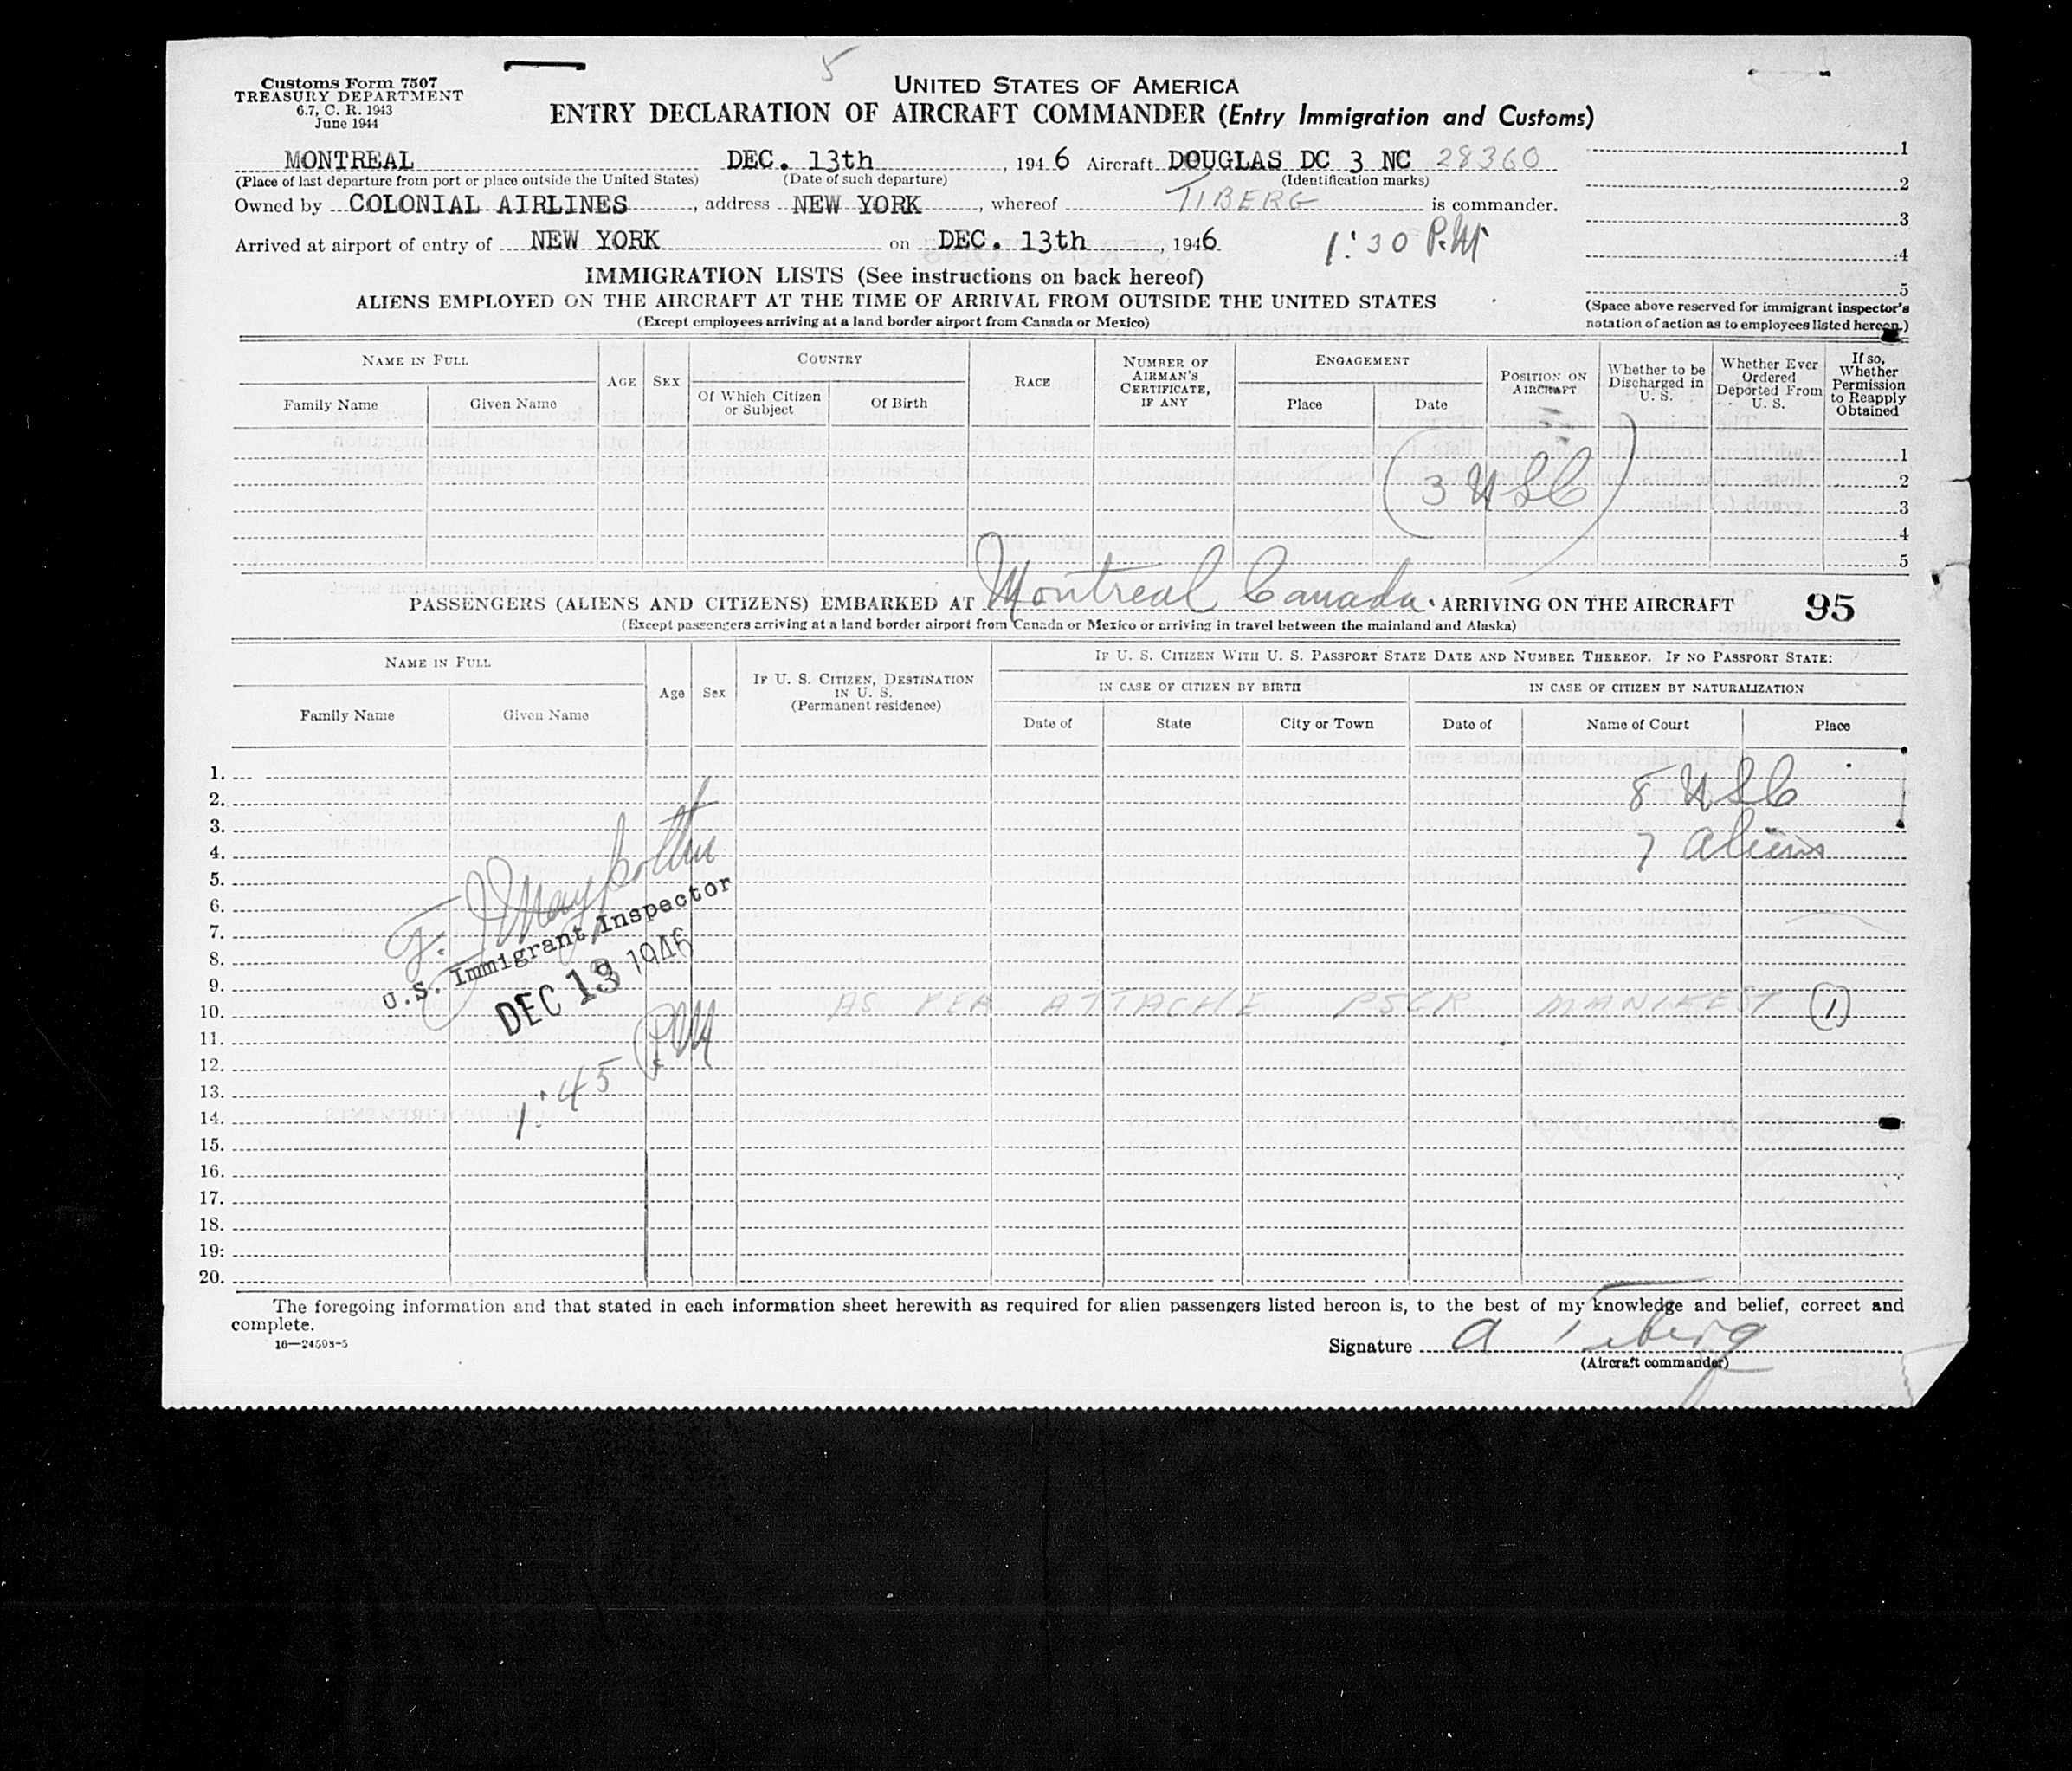 5
Customs Form 7507
TREASURY DEPARTMENT
6.7, C. R. 1943
June 1944
UNITED STATES OF AMERICA
ENTRY DECLARATION OF AIRCRAFT COMMANDER (Entry Immigration and Customs)
MONTREAL DEC. 13th, 1946 Aircraft DOUGLAS DC 3 NC 28360
(Place of last departure from port or place outside the United States) (Date of such departure) (Identification marks)
Owned by COLONIAL AIRLINES, address NEW YORK, whereof TIBERG is commander.
Arrived at airport of entry of NEW YORK on DEC. 13th, 1946 1:30 P.M.
1
2
3
4
5
(Space above reserved for immigrant inspector's notation of action as to employees listed hereon.)
IMMIGRATION LISTS (See instructions on back hereof)
ALIENS EMPLOYED ON THE AIRCRAFT AT THE TIME OF ARRIVAL FROM OUTSIDE THE UNITED STATES
(Except employees arriving at a land border airport from Canada or Mexico)
NAME IN FULL
Family Name Given Name
AGE SEX
COUNTRY
Of Which Citizen or Subject Of Birth
RACE
NUMBER OF AIRMAN'S CERTIFICATE, IF ANY
ENGAGEMENT
Place Date
POSITION ON AIRCRAFT
Whether to be Discharged in U. S.
Whether Ever Ordered Deported From U. S.
If so, Whether Permission to Reapply Obtained
1
2
(3 USC)
3
4
5
PASSENGERS (ALIENS AND CITIZENS) EMBARKED AT Montreal Canada, ARRIVING ON THE AIRCRAFT 95
(Except passengers arriving at a land border airport from Canada or Mexico or arriving in travel between the mainland and Alaska)
NAME IN FULL
Family Name Given Name
Age Sex
IF U. S. CITIZEN, DESTINATION IN U. S.
(Permanent residence)
IF U. S. CITIZEN WITH U. S. PASSPORT STATE DATE AND NUMBER THEREOF. IF NO PASSPORT STATE:
IN CASE OF CITIZEN BY BIRTH IN CASE OF CITIZEN BY NATURALIZATION
Date of State City or Town Date of Name of Court Place
1.
2. 8 USC
3.
4. 7 Aliens
5.
6.
7.
8.
9.
10. AS PER ATTACHE PSGR MANIFEST (1)
11.
12.
13.
14.
15.
16.
17.
18.
19.
20.
U.S. Immigrant Inspector
DEC 13 1946
1:45 PM
The foregoing information and that stated in each information sheet herewith as required for alien passengers listed hereon is, to the best of my knowledge and belief, correct and
complete.
16—24598-5
Signature A Tiberg
(Aircraft commander)